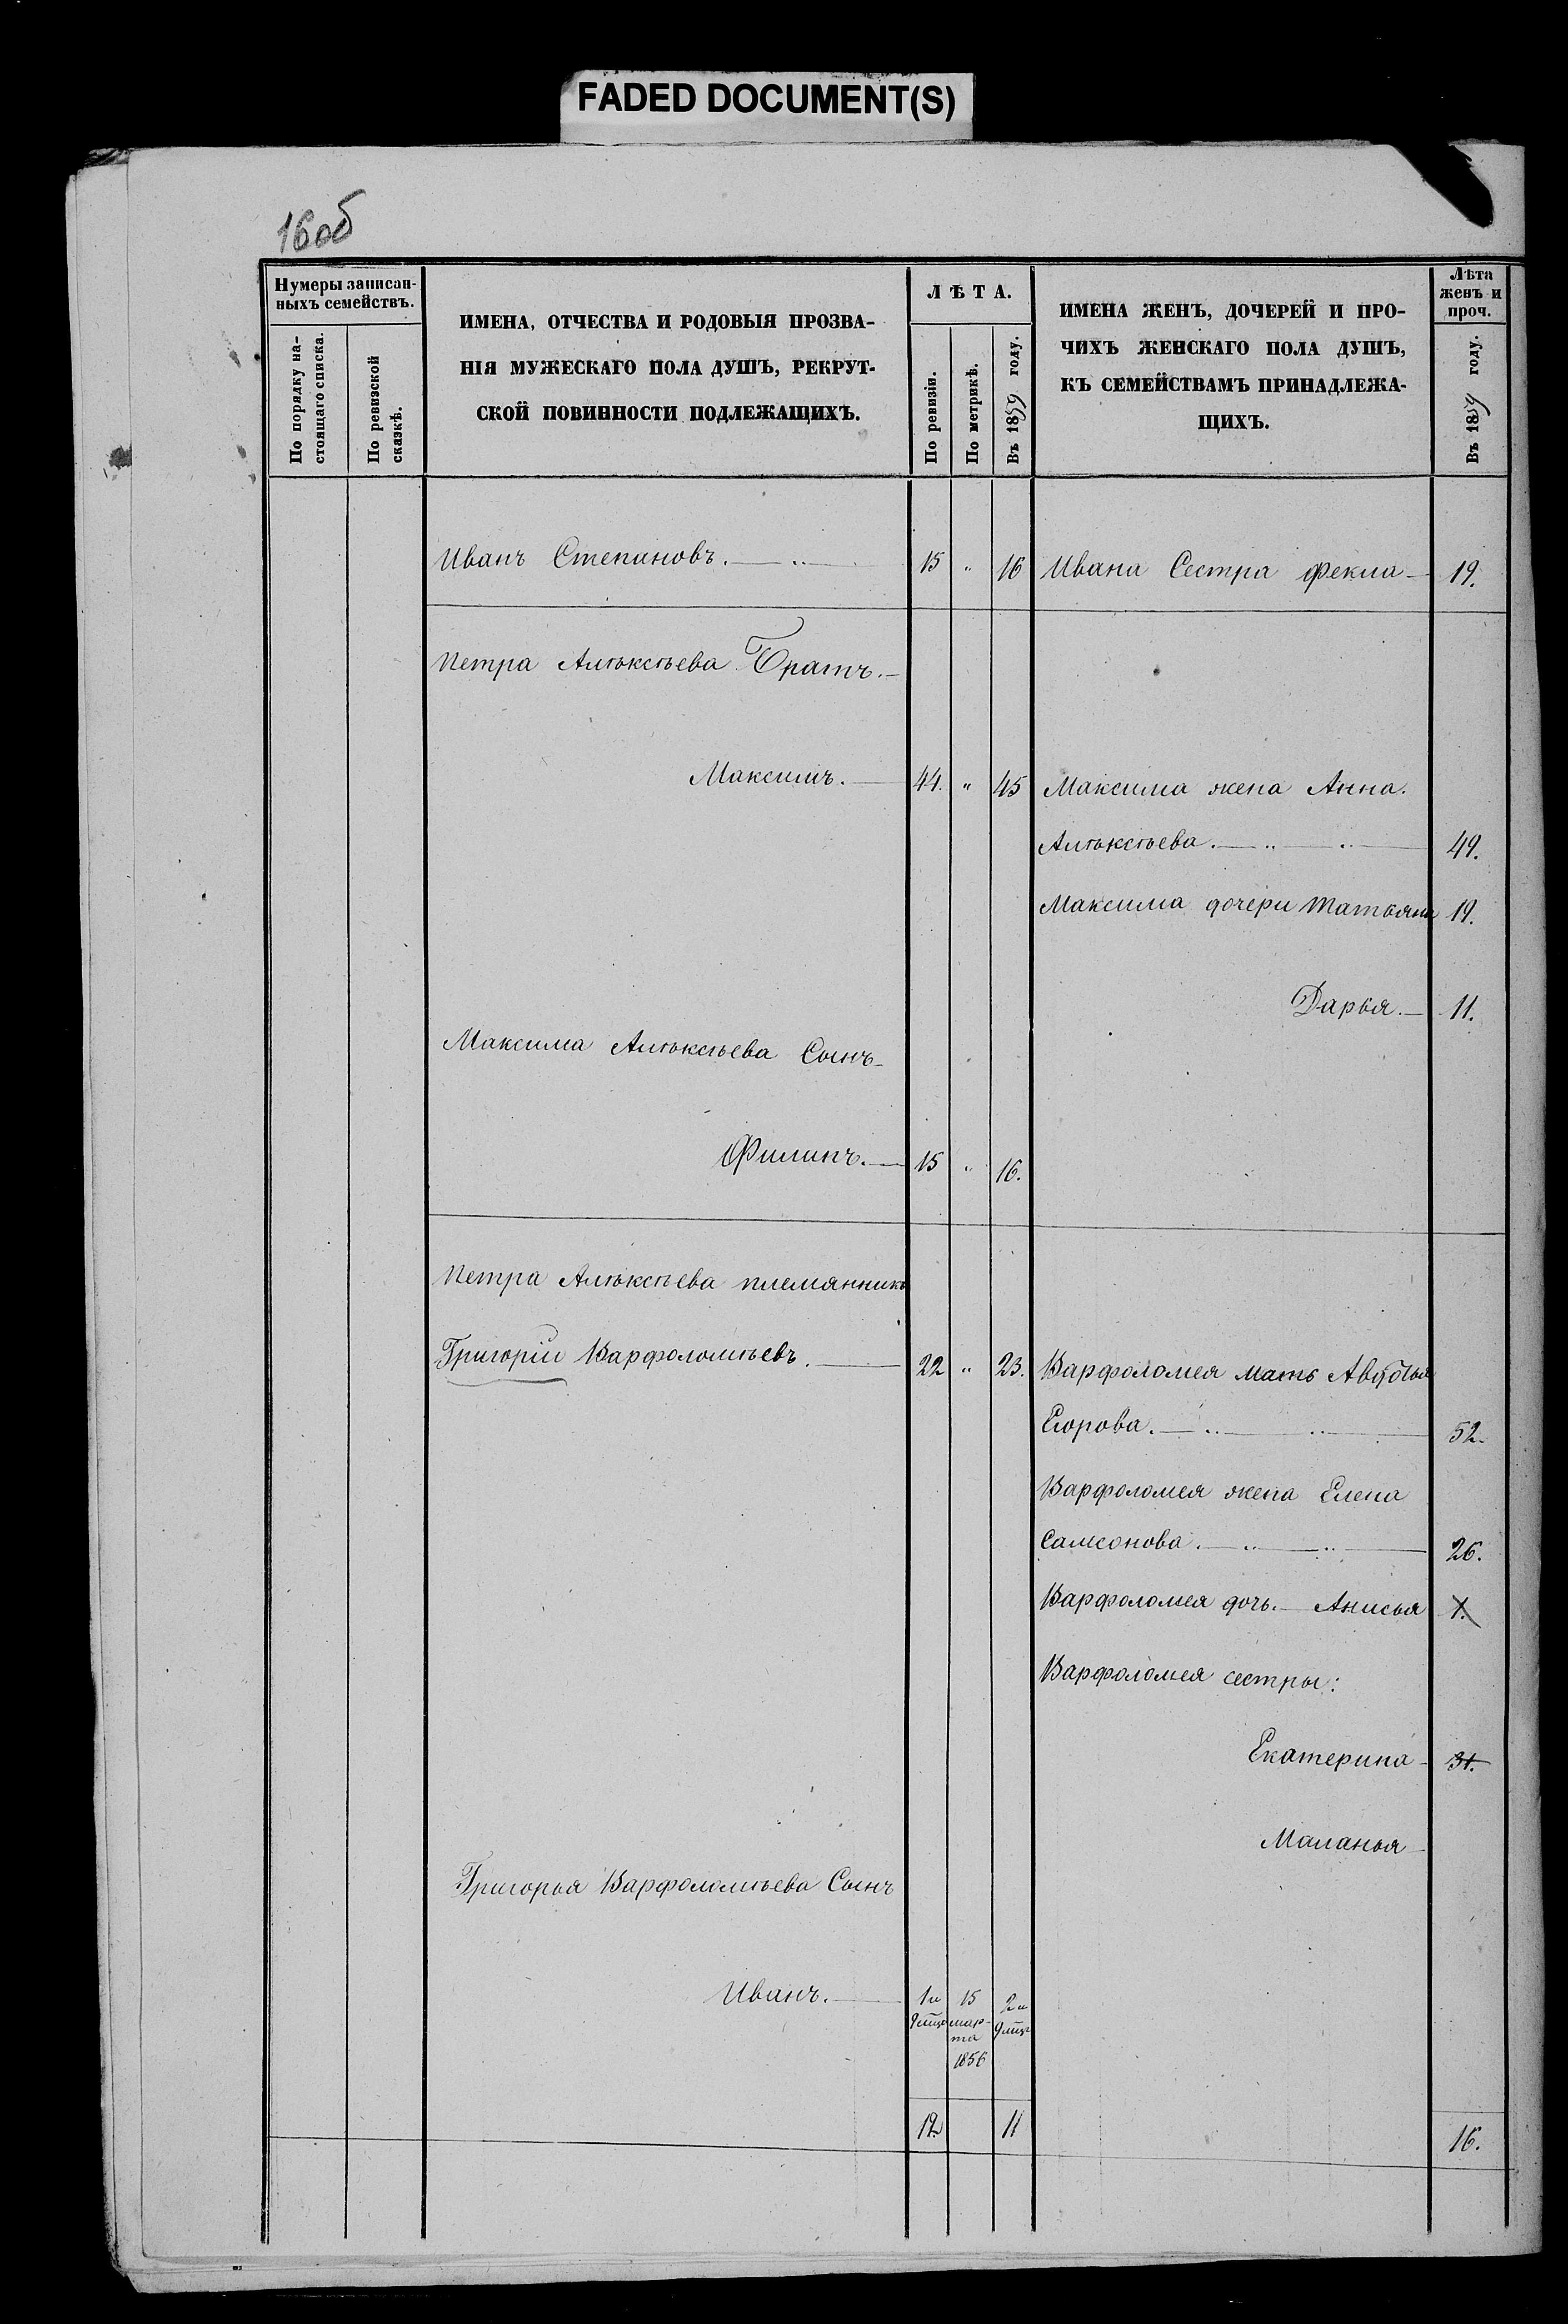 FADED DOCUMENT(S)
16об
Нумеры записан-
ныхъ семействъ.
По порядку на-
стоящаго списка.
По ревизской
сказкѣ.
ИМЕНА, ОТЧЕСТВА И РОДОВЫЯ ПРОЗВА-
НІЯ МУЖЕСКАГО ПОЛА ДУШЪ, РЕКРУТ-
СКОЙ ПОВИННОСТИ ПОДЛЕЖАЩИХЪ.
ЛѢТА.
По ревизіи.
По метрикѣ.
Въ 1859 году.
ИМЕНА ЖЕНЪ, ДОЧЕРЕЙ И ПРО-
ЧИХЪ ЖЕНСКАГО ПОЛА ДУШЪ,
КЪ СЕМЕЙСТВАМЪ ПРИНАДЛЕЖА-
ЩИХЪ.
Лѣта
женъ и
проч.
Въ 1859 году.
Иванъ Степановъ. 15 " 16 Ивана Сестра Фекла 19.
Петра Алѣксѣева Братъ.
Максимъ. 44. " 45 Максима жена Анна.
Алѣксѣева. 49.
Максима дочери Татьяна 19.
Дарья. 11.
Максима Алѣксѣева Сынъ
Филипъ. 15 " 16.
Петра Алѣксѣева племянникъ
Григорій Варфоломѣевъ. 22 " 23. Варфоломея мать Авдотья
Егорова. 52.
Варфоломея жена Елена
Самсонова. 26.
Варфоломея дочь. Анисья 1.
Варфоломея сестры:
Екатерина 31.
Маланья
Григорья Варфоломѣева Сынъ
Иванъ. 1 и 15 2 и
9 мцъ мар- 9 мцъ
та
1856
12. 11 16.